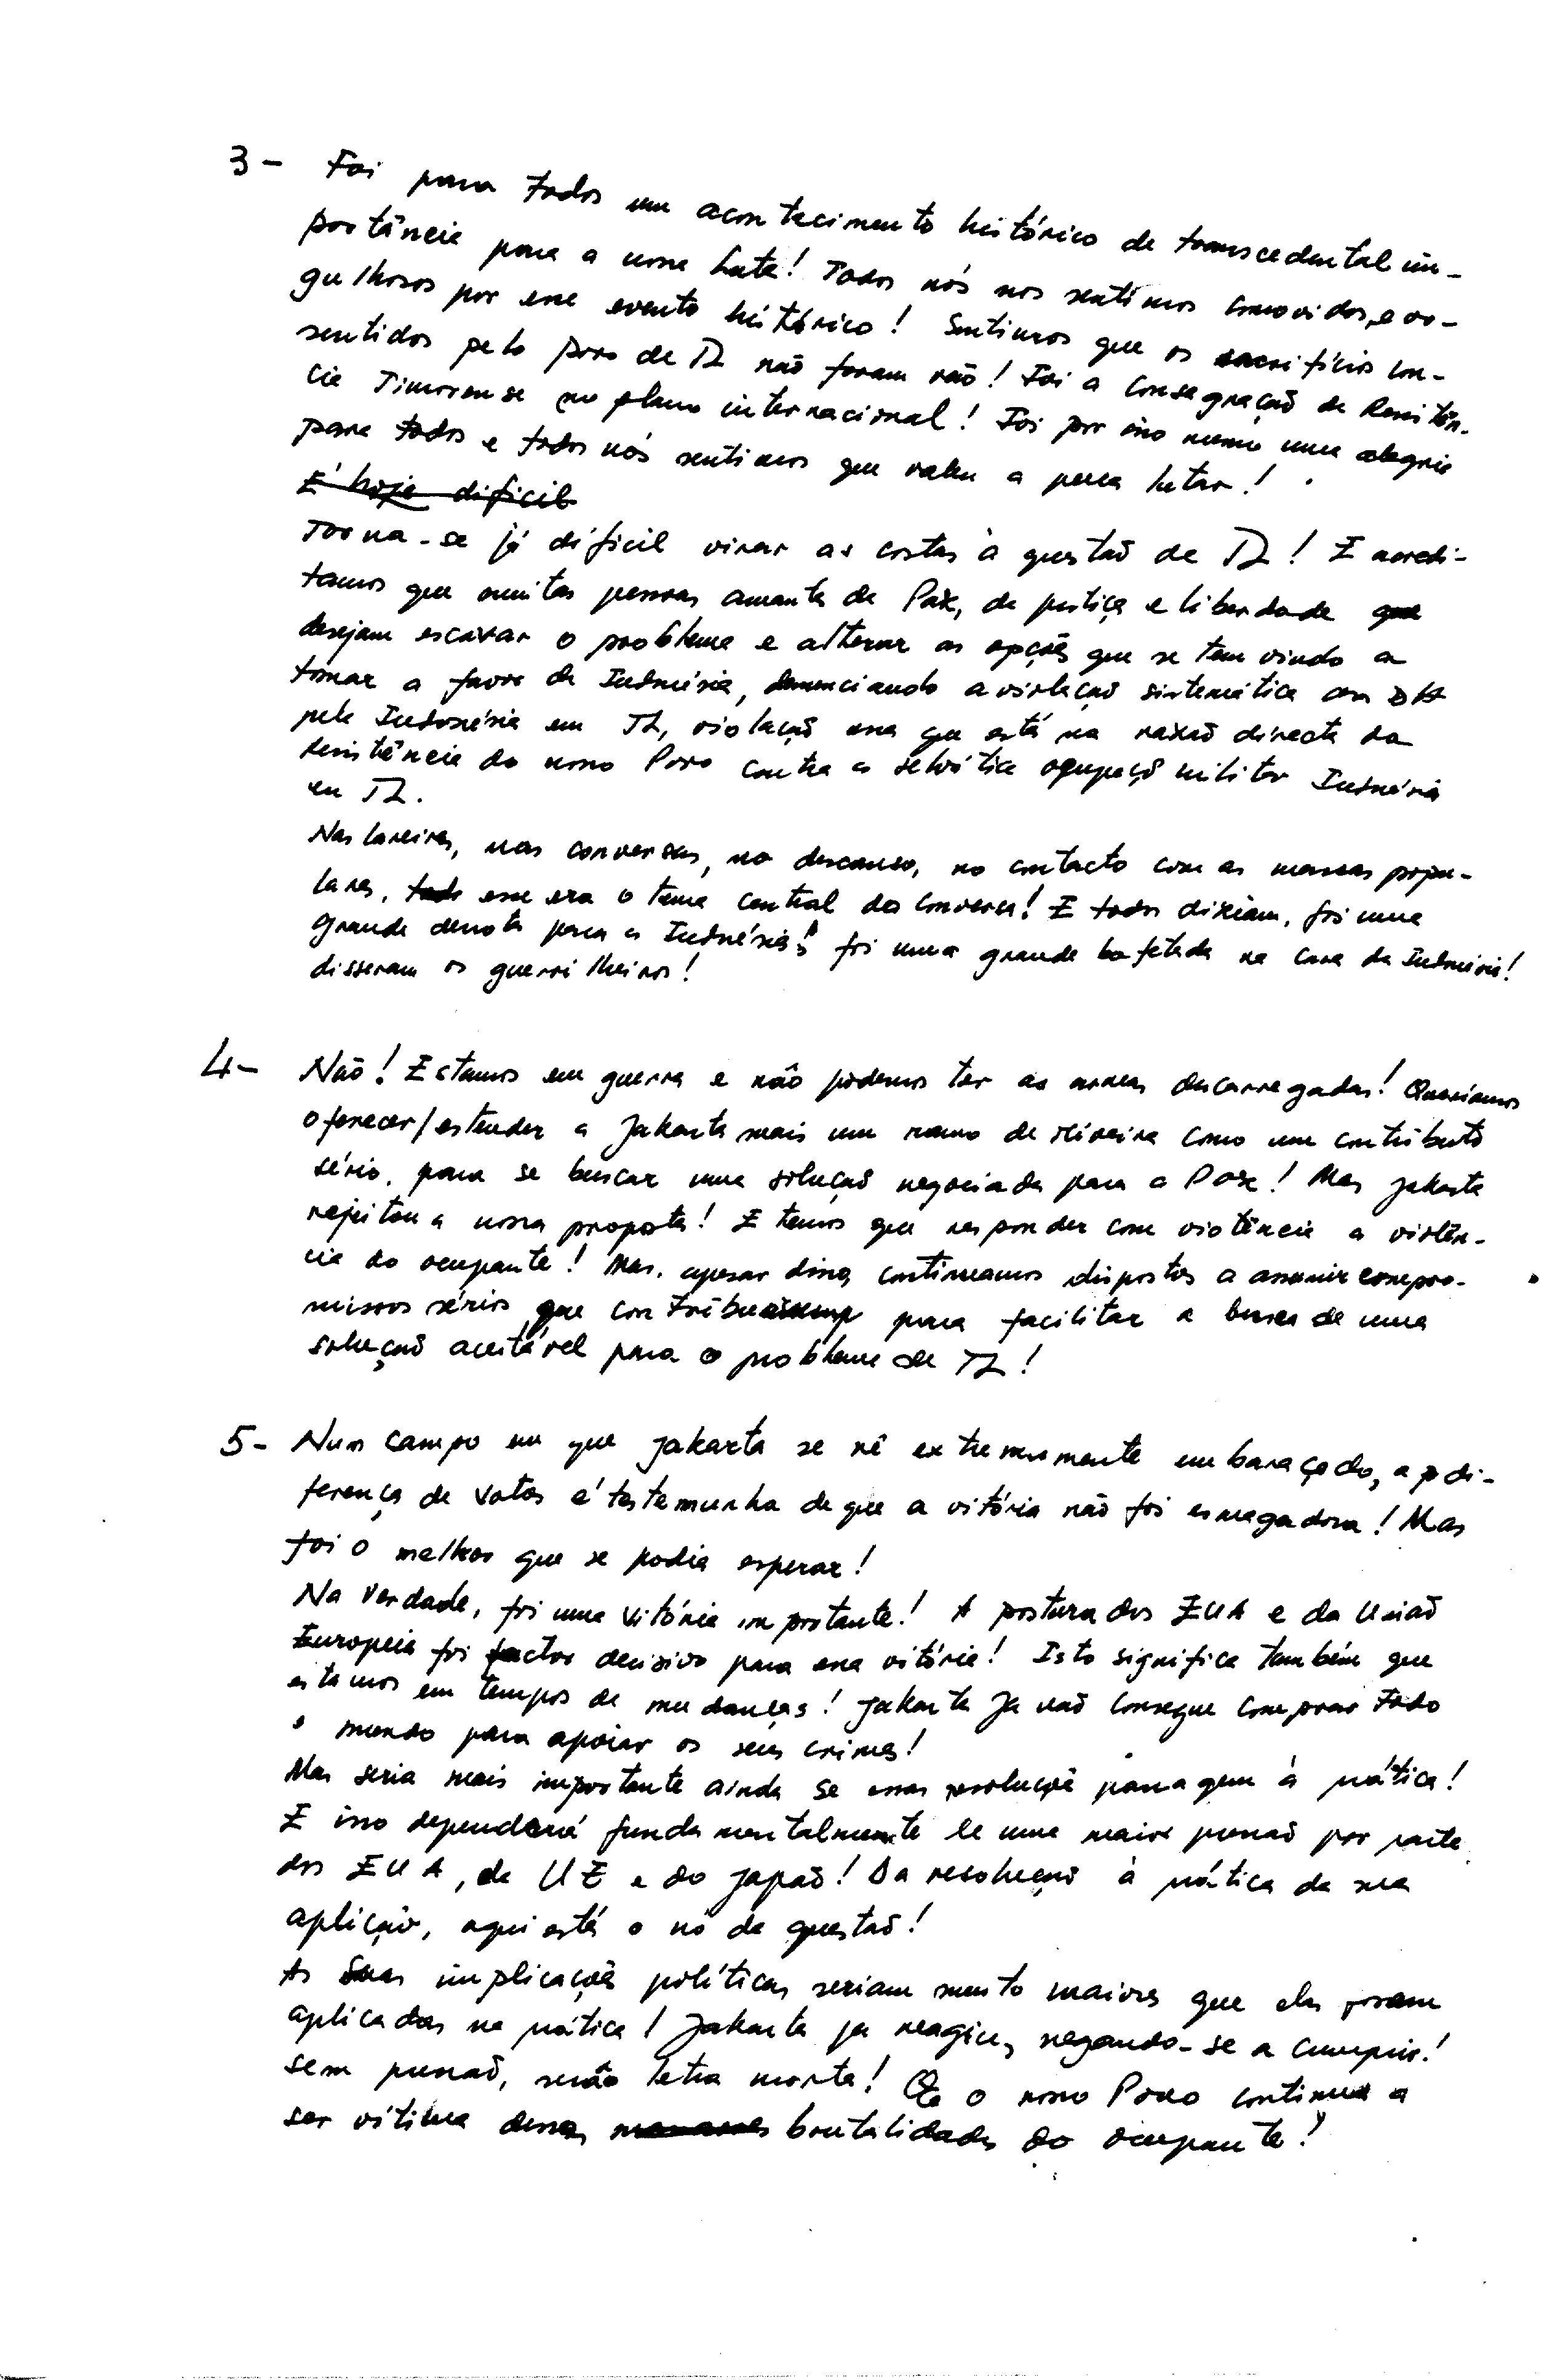 3 - Foi para todos um acontecimento histórico de transcedental im-
portância para a nossa luta! Todos nós nos sentimos comovidos, e or-
gulhosos por esse evento histórico! Sentimos que os sacrifícios con-
sentidos pelo povo de TL não foram vão! Foi a consagração da Resistên-
cia Timorense no plano internacional! Foi por isso mesmo uma alegria
para todos e todos nós sentimos que valeu a pena lutar!
É hoje difícil
Torna-se já difícil virar as costas à questão de TL! E acredi-
tamos que muitas pessoas amantes da Paz, da justiça e liberdade que
desejam o problema e alterar as opções que se tem vindo a
tomar a favor da Indonésia, denunciando a violação sistemática dos DH
pela Indonésia em TL, violação essa que está na razão directa da
Resistência do nosso Povo contra a selvática ocupação militar Indonésia
em TL.
Nas lareiras, nas conversas, no descanso, no contacto com as massas popu-
lares, esse era o tema central da conversa! E todos diziam, foi uma
grande derrota para a Indonésia! foi uma grande bofetada na cara da Indonésia!
disseram os guerrilheiros!
4 - Não! Estamos em guerra e não podemos ter as armas descarregadas! Queríamos
oferecer/estender a Jakarta mais um ramo de oliveira como um contributo
sério, para se buscar uma solução negociada para a Paz! Mas Jakarta
rejeitou a nossa proposta! E temos que responder com violência a violên-
cia do ocupante! Mas, apesar disso, continuamos dispostos a assumir compro-
missos sérios que para facilitar a busca de uma
solução aceitável para o problema de TL!
5 - Num campo em que Jakarta se vê extremamente embaraçado, a di-
ferença de votos é testemunha de que a vitória não foi esmagadora! Mas
foi o melhor que se podia esperar!
Na verdade, foi uma vitória importante! A postura dos EUA e da União
Europeia foi factor decisivo para essa vitória! Isto significa também que
estamos em tempos de mudanças! Jakarta já não consegue comprar todo
o mundo para apoiar os seus crimes!
Mas seria mais importante ainda se essas resoluções passagem à prática!
E isso dependerá fundamentalmente de uma maior pressão por parte
dos EUA, da UE e do Japão! Da resolução à prática da sua
aplicção, aqui está o nó da questão!
As suas implicações políticas seriam muito maiores que elas fossem
aplicadas na prática! Jakarta já reagiu, negando-se a cumprir!
Sem pressão, serão letra morta! E o nosso Povo continua a
ser vítima dessas brutalidades do ocupante!